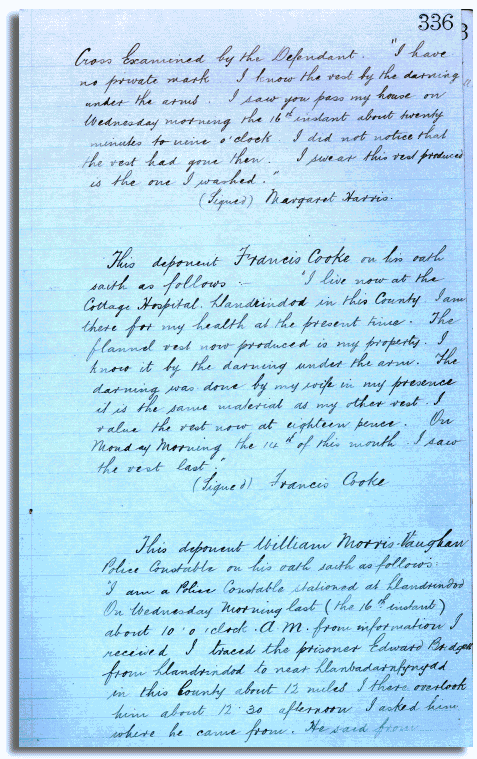 336
Cross Examined by the Defendant. "I have
no private mark I know the vest by the darning
under the arms. I saw you pass my house on
Wednesday morning the 16th instant about twenty
minutes to nine o'clock. I did not notice that
the vest had gone then. I swear this vest produced
is the one I washed."
(Signed) Margaret Harris.
This deponent Francis Cooke on his oath
saith as follows :- "I live now at the
Cottage Hospital. Llandrindod in this County. I am
there for my health at the present time. The
flannel vest now produced is my property. I
know it by the darning under the arm. The
darning was done by my wife in my presence
it is the same material as my other vest. I
value the vest now at eighteen pence. On
Monday Morning the 14th of this month I saw
the vest last."
(Signed) Francis Cooke
This deponent William Morris Vaughan
Police Constable on his oath saith as follows:
"I am a Police Constable stationed at Llandrindod
On Wednesday Morning last (the 16th instant)
about 10 o'clock. A.M. from information I
received I traced the prisoner Edward Bridges
from Llandrindod to near Llanbadarnfynydd
in this County about 12 miles I there overtook
him about 12.30 afternoon I asked him
where he came from. He said from